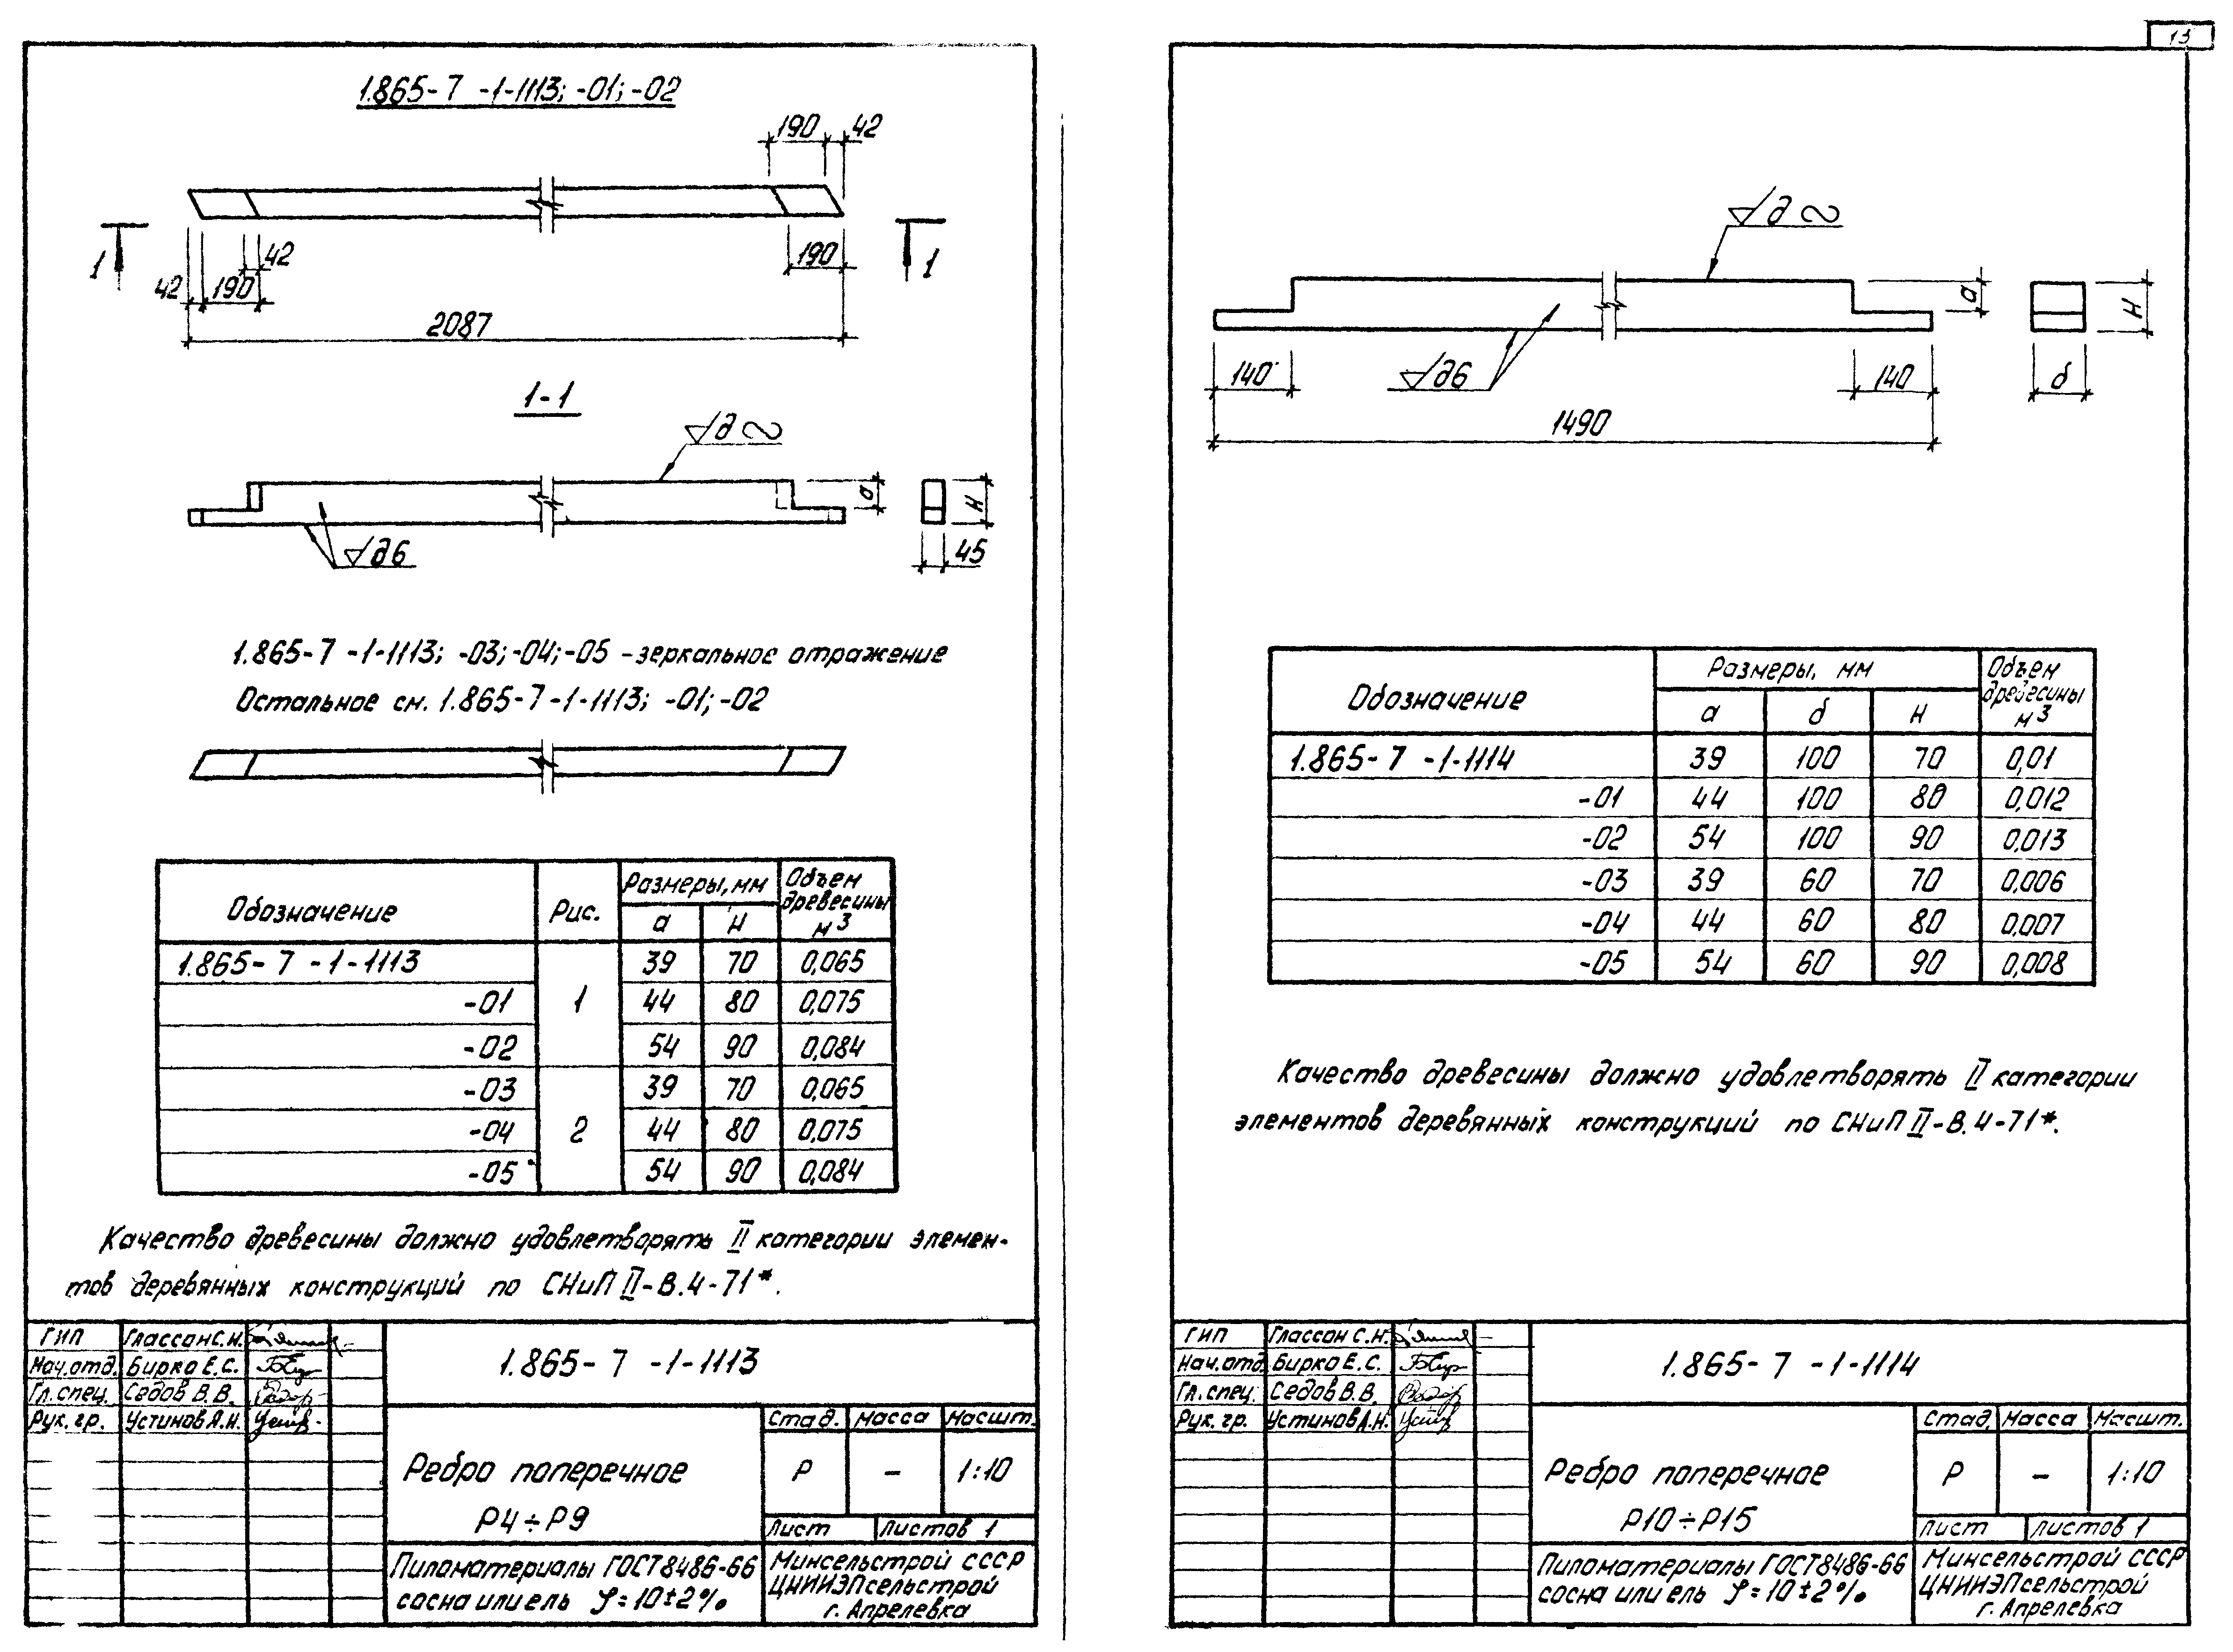 13
1.865-7 -1-1113; -01; -02
190 42
1 1
42 190
42 190
2087
1-1
д ∾
а Н
д6 45
1.865-7 -1-1113; -03; -04; -05 - зеркальное отражение
Остальное см. 1.865-7-1-1113; -01; -02
Обозначение Рис. Размеры, мм Объем древесины м3
а Н
1.865-7 -1-1113 1 39 70 0,065
-01 44 80 0,075
-02 54 90 0,084
-03 2 39 70 0,065
-04 44 80 0,075
-05 54 90 0,084
Качество древесины должно удовлетворять II категории элемен-
тов деревянных конструкций по СНиП II-В.4-71*.
ГИП Глассон С.Н.
Нач.отд. Бирко Е.С.
Гл.спец. Седов В.В.
Рук.гр. Устинов А.Н.
1.865-7 -1-1113
Ребро поперечное
Р4÷Р9
Стад. Масса Масшт.
Р - 1:10
Лист Листов 1
Пиломатериалы ГОСТ8486-66
сосна или ель φ=10±2%
Минсельстрой СССР
ЦНИИЭПсельстрой
г. Апрелевка
д ∾
а Н
140 д6 140 б
1490
Обозначение Размеры, мм Объем древесины м3
а б Н
1.865-7 -1-1114 39 100 70 0,01
-01 44 100 80 0,012
-02 54 100 90 0,013
-03 39 60 70 0,006
-04 44 60 80 0,007
-05 54 60 90 0,008
Качество древесины должно удовлетворять II категории
элементов деревянных конструкций по СНиП II-В.4-71*.
ГИП Глассон С.Н.
Нач.отд. Бирко Е.С.
Гл.спец. Седов В.В.
Рук.гр. Устинов А.Н.
1.865-7 -1-1114
Ребро поперечное
Р10÷Р15
Стад. Масса Масшт.
Р - 1:10
Лист Листов 1
Пиломатериалы ГОСТ8486-66
сосна или ель φ=10±2%
Минсельстрой СССР
ЦНИИЭПсельстрой
г. Апрелевка